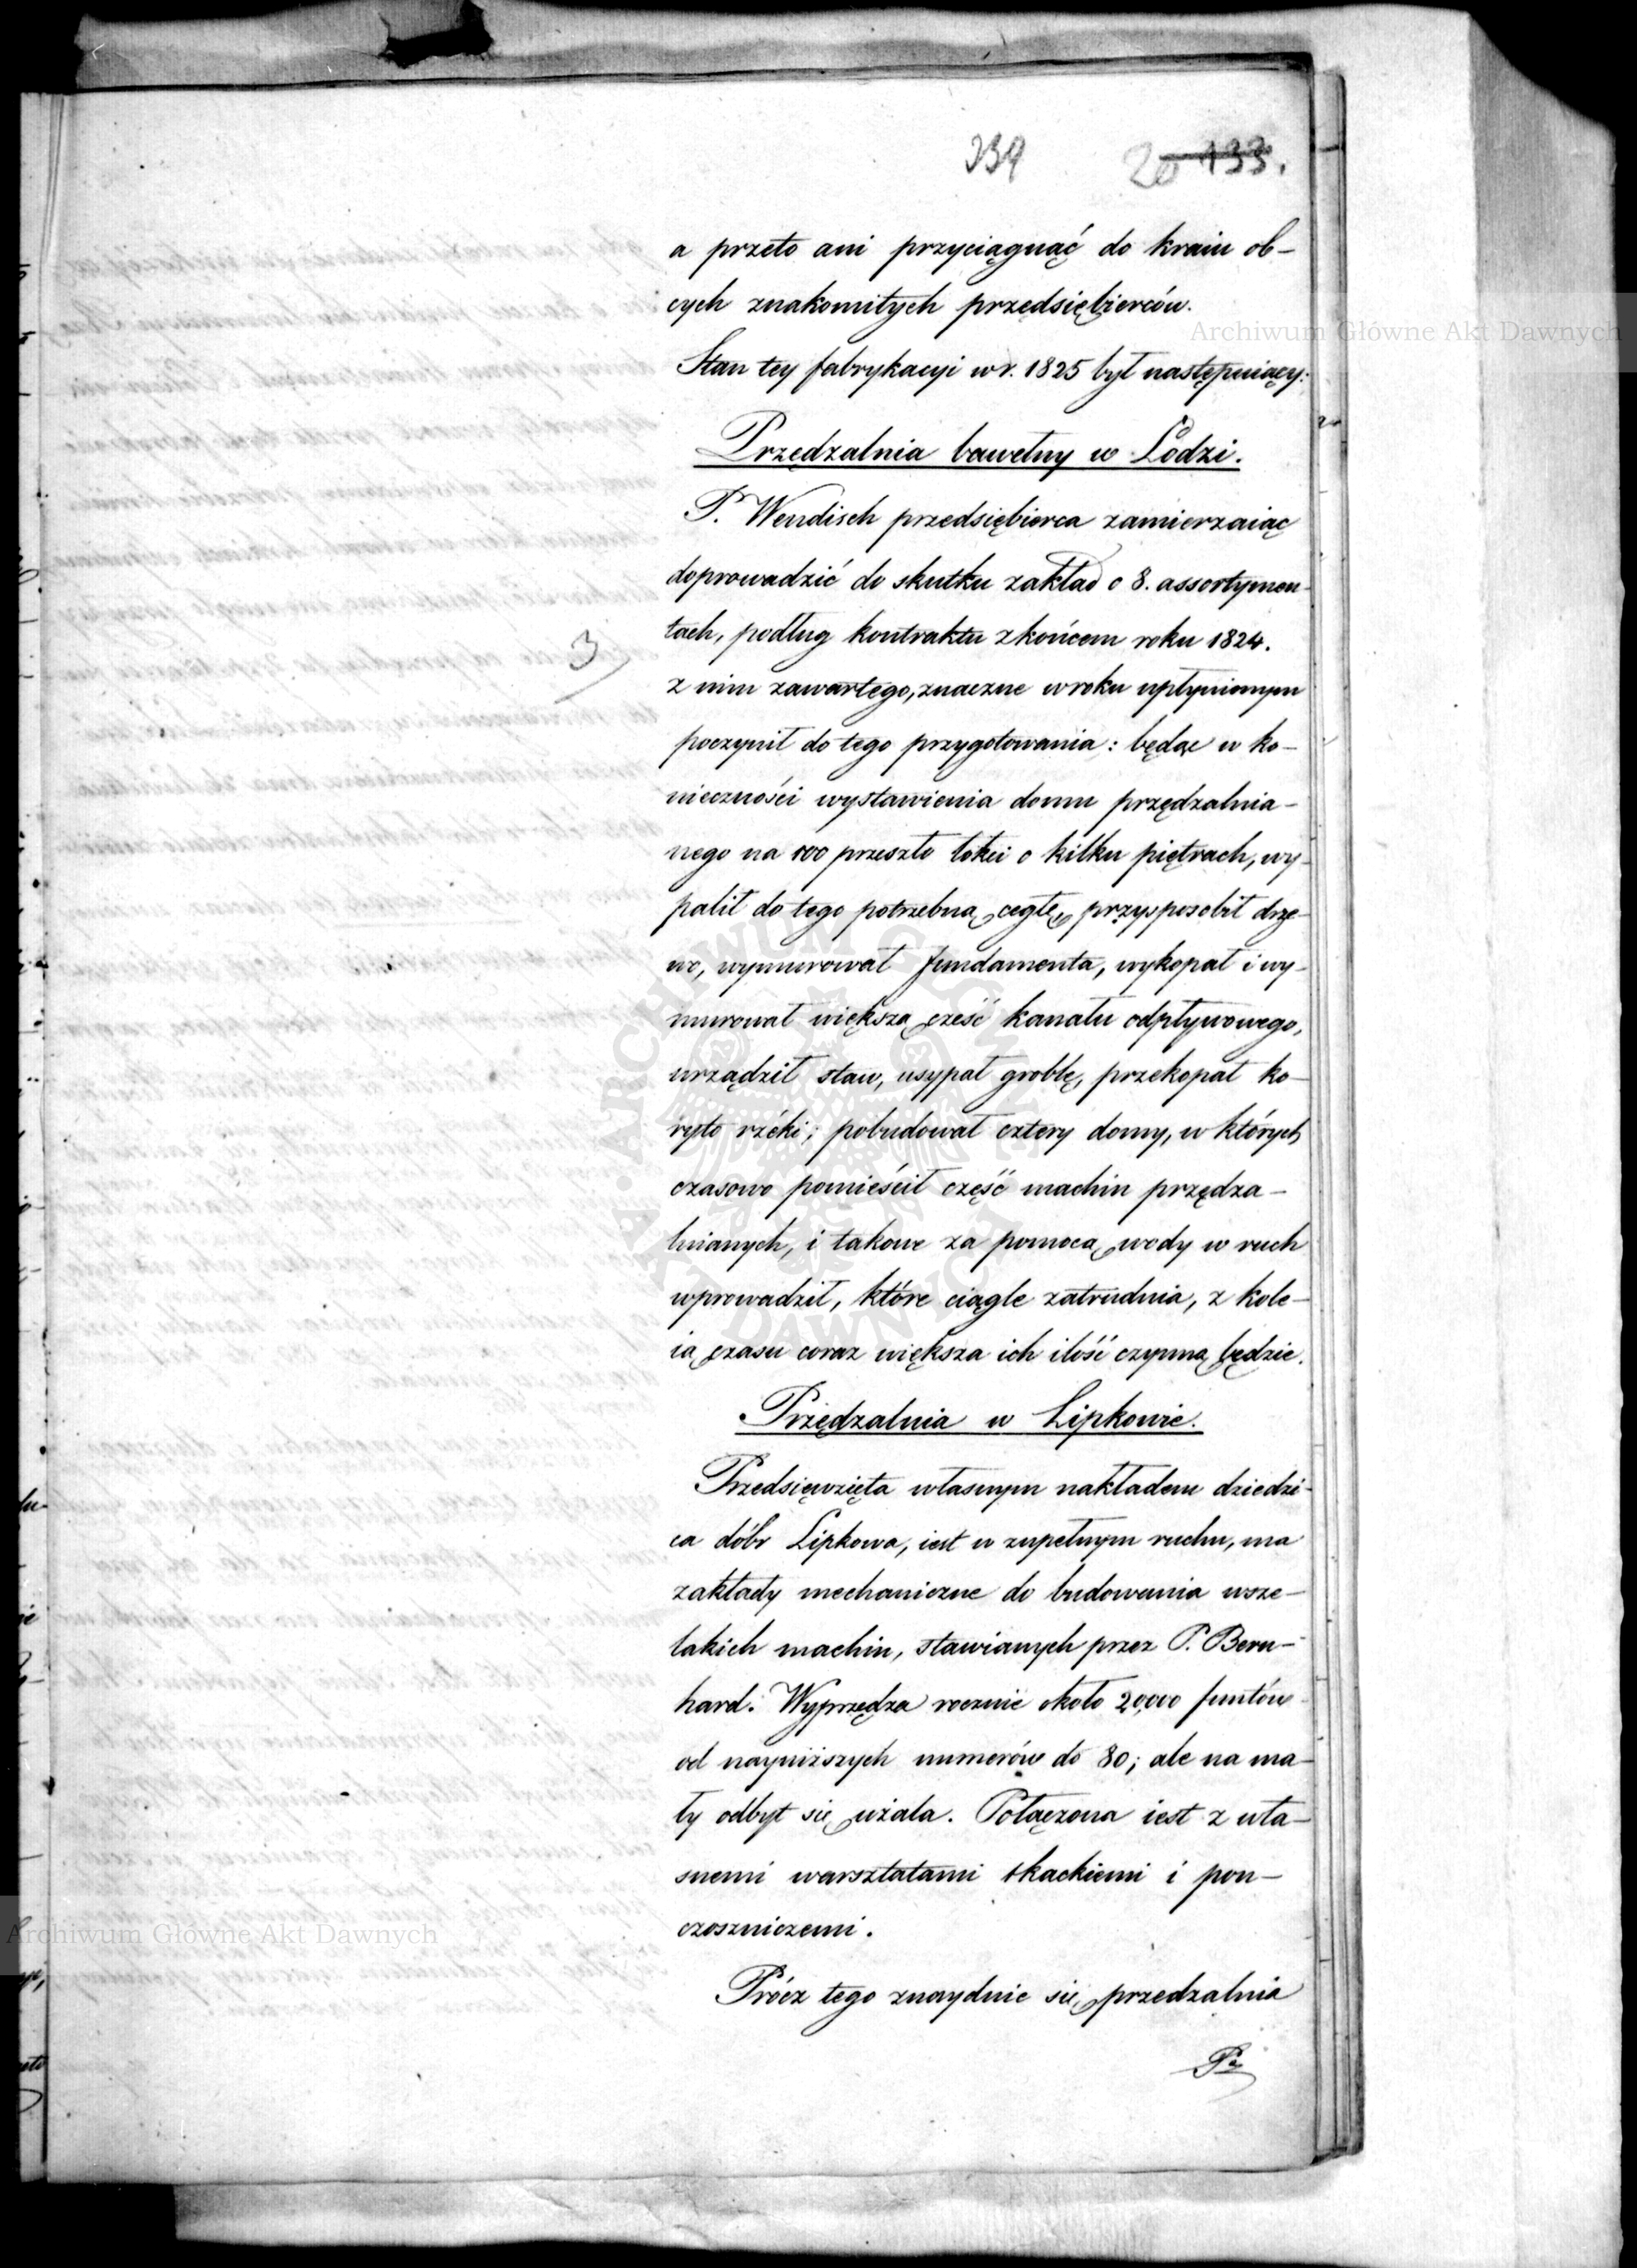 239 20 133.
a przeto ani przyciągnąć do kraiu ob-
cych znakomitych przedsiębierców.
Stan tey fabrykacyi w r. 1825 był następuiący:
Przędzalnia bawełny w Łodzi.
P. Wendisch przedsiębierca zamierzaiąc
doprowadzić do skutku zakład o 8. assortymen-
tach, podług kontraktu z końcem roku 1824.
3
z nim zawartego, znaczne w roku upłynionym
poczynił do tego przygotowania: będąc w ko-
nieczności wystawienia domu przędzalnia-
nego na 100 przeszło łokci o kilku piętrach, wy-
palił do tego potrzebną cegłę, przysposobił drze-
wo, wymurował fundamenta, wykopał i wy-
murował większą część kanału odpływowego,
urządził staw, usypał groblę, przekopał ko-
ryto rzéki; pobudował cztery domy, w których
czasowo pomieścił część machin przędza-
lnianych, i takowe za pomocą wody w ruch
wprowadził, które ciągle zatrudnia, z kole-
ią czasu coraz większa ich ilość czynną będzie.
Przędzalnia w Lipkowie.
Przedsięwzięta własnym nakładem dziedzi-
ca dóbr Lipkowa, iest w zupełnym ruchu, ma
zakłady mechaniczne do budowania wsze-
lakich machin, stawianych przez P. Bern-
hard. Wyprzędza rocznie około 20,000 funtów
od nayniższych numerów do 80; ale na ma-
ły odbyt się użala. Połączona iest z wła-
snemi warsztatami tkackiemi i pon-
czoszniczemi.
Prócz tego znayduie się przedzalnia
Archiwum Główne Akt Dawnych
Archiwum Główne Akt Dawnych
ARCHIWUM GŁÓWNE AKT DAWNYCH